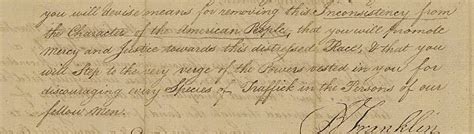 you will devise means for removing this Inconsistency from
the Character of the American People, that you will promote
Mercy and Justice towards this distressed Race, & that you
will Step to the very verge of the Powers vested in you for
discouraging every Species of Traffick in the Persons of our
fellow men.
B Franklin